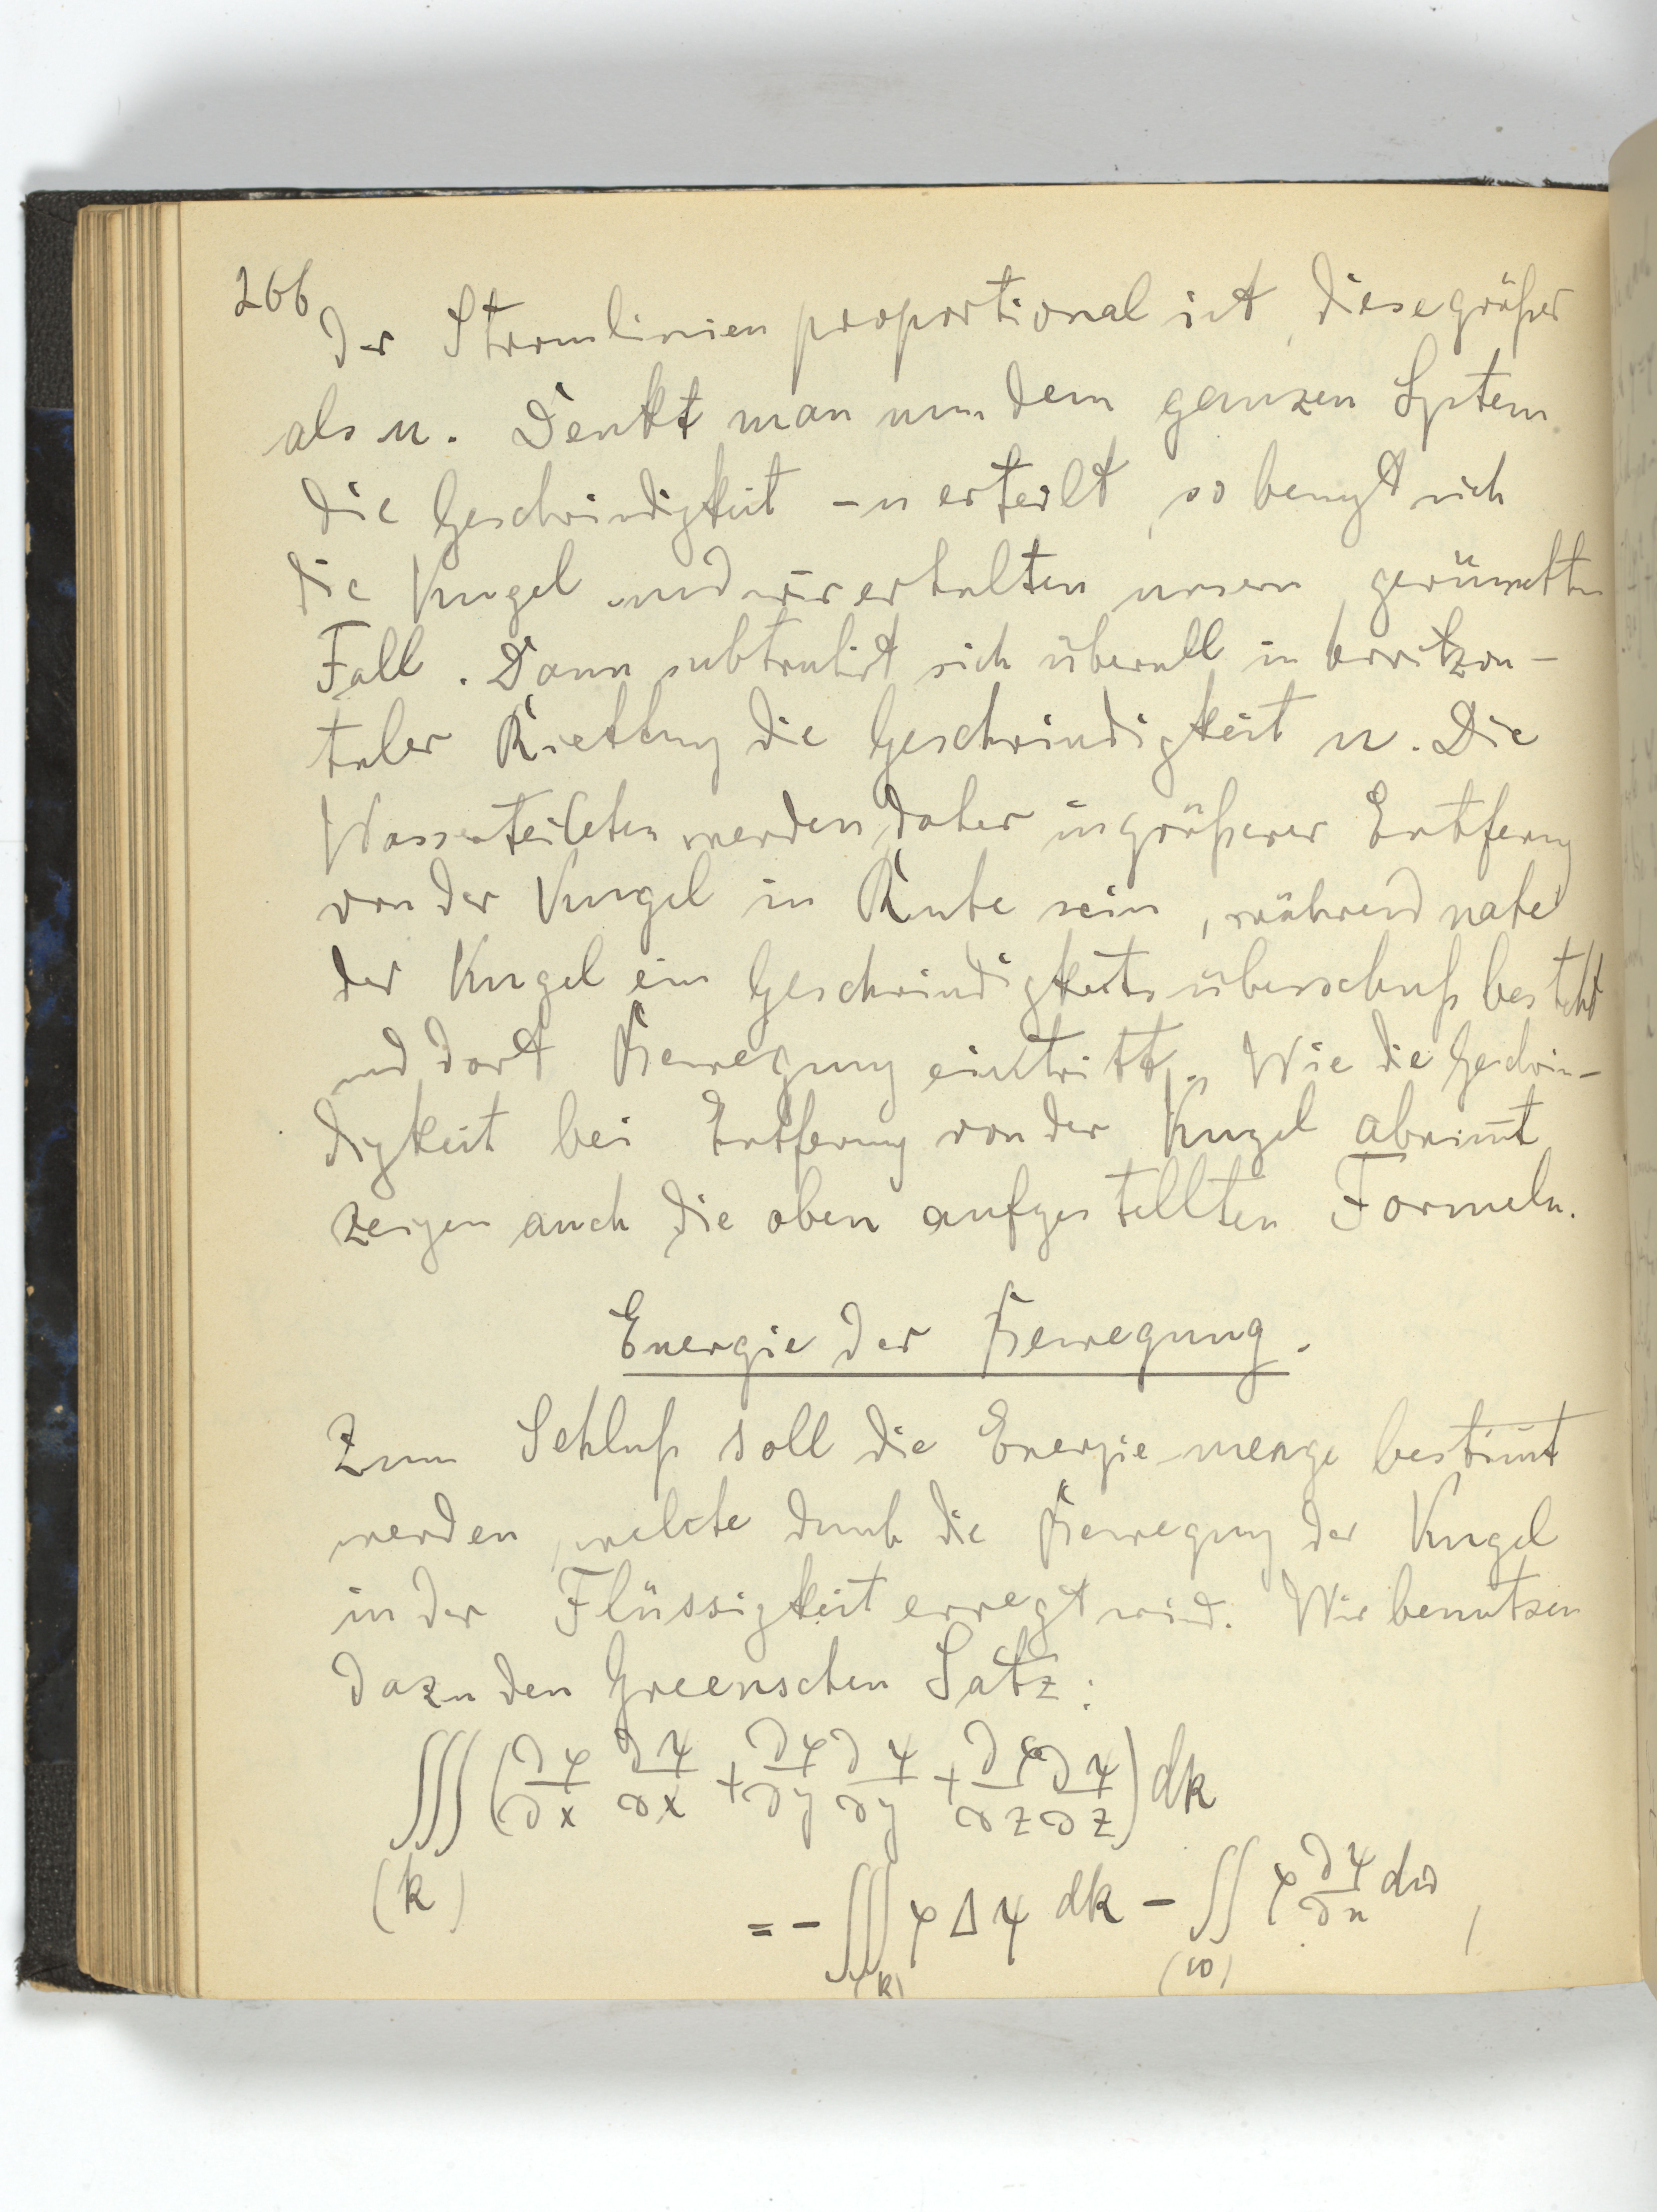 266
der Stromlinien proportional ist, diese größer
als u. Denkt man nun dem ganzen System
die Geschwindigkeit -u erteilt, so bewegt sich
die Kugel und wir erhalten unsern gewünschten
Fall. Dann subtrahirt sich überall in horitzon-
taler Richtung die Geschwindigkeit u. Die
Wasserteilchen werden daher in größerer Entferng
von der Kugel in Ruhe sein, während nahe
der Kugel ein Geschwindigkeitsüberschuß besteht
und dort Bewegung eintritt. Wie die Geschwin-
digkeit bei Entfernung von der Kugel abnim̅t
zeigen auch die oben aufgestellten Formeln.
Energie der Bewegung.
Zum Schluß soll die Energie-menge bestim̅t
werden, welche durch die Bewegung der Kugel
in der Flüssigkeit erregt wird. Wir benutzen
dazu den Greenschen Satz:
∭ (∂φ/∂x ∂ψ/∂x + ∂φ/∂y ∂ψ/∂y + ∂φ/∂z ∂ψ/∂z) dk
(k)
= - ∭ φ Δ ψ dk - ∬ φ ∂ψ/∂n dω,
(k) (ω)